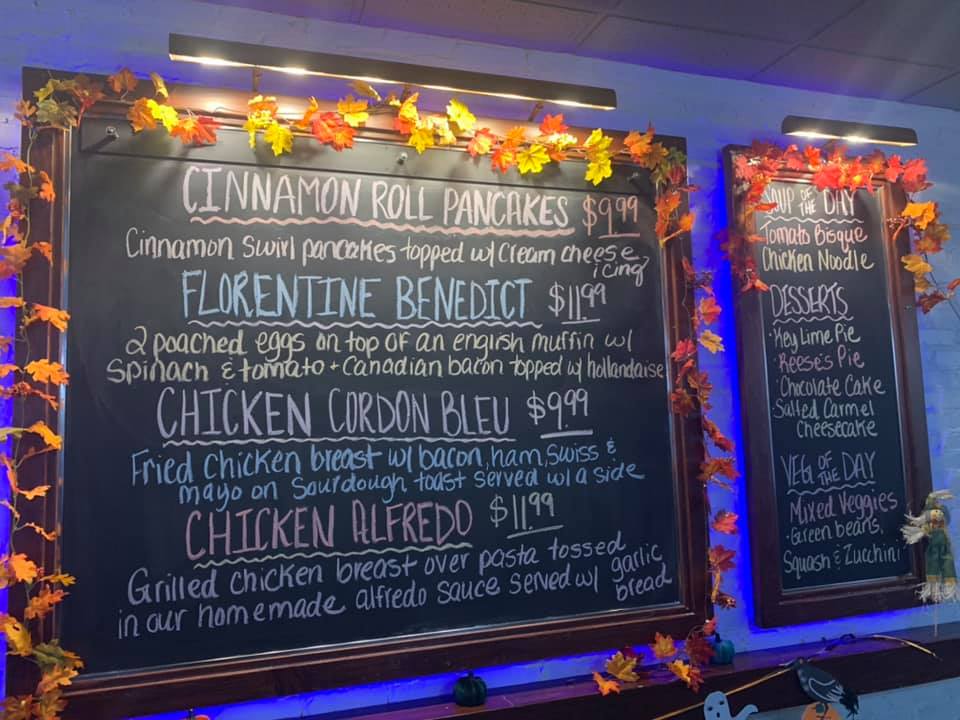 CINNAMON ROLL PANCAKES $9.99
Cinnamon swirl pancakes topped w/ cream cheese
icing
FLORENTINE BENEDICT $11.99
2 poached eggs on top of an english muffin w/
Spinach & tomato + Canadian bacon topped w/ hollandaise
CHICKEN CORDON BLEU $9.99
Fried chicken breast w/ bacon, ham, swiss &
mayo on Sourdough toast served w/ a side
CHICKEN ALFREDO $11.99
Grilled chicken breast over pasta tossed
in our homemade alfredo sauce served w/ garlic
bread
SOUP OF THE DAY
Tomato Bisque
Chicken Noodle
DESSERTS
• Key Lime Pie
• Reese's Pie
• Chocolate Cake
• Salted Carmel
Cheesecake
VEGI OF THE DAY
Mixed Veggies
• Green beans,
Squash & Zucchini